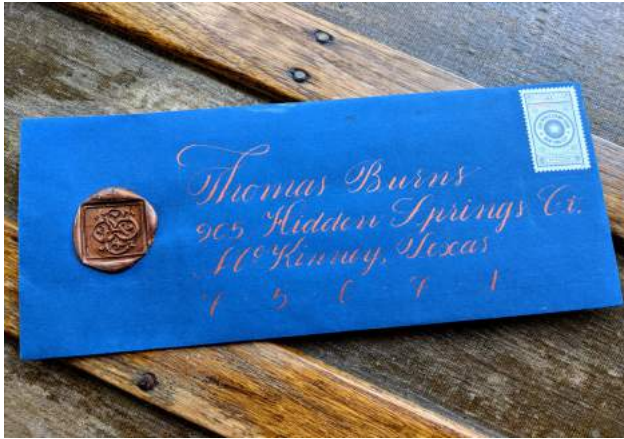 Thomas Burns
905 Hidden Springs Ct.
McKinney, Texas
7 5 0 7 1